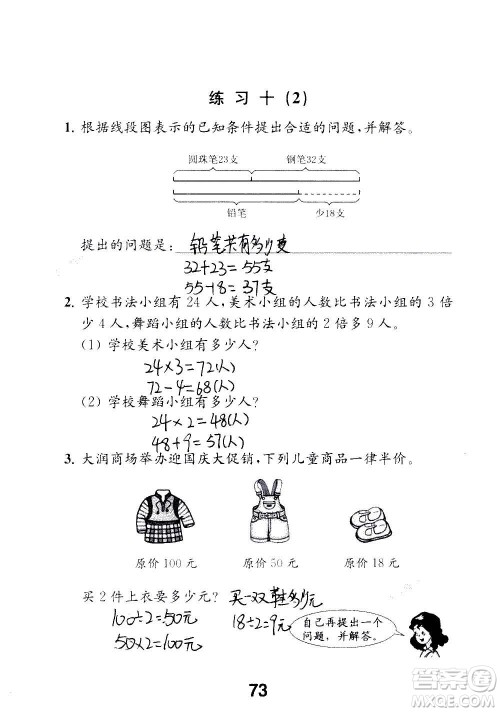 练习十(2)
1. 根据线段图表示的已知条件提出合适的问题,并解答。
圆珠笔23支 钢笔32支
铅笔 少18支
提出的问题是: 铅笔共有多少支
32+23=55支
55-18=37支
2. 学校书法小组有 24 人,美术小组的人数比书法小组的 3 倍
少 4 人,舞蹈小组的人数比书法小组的 2 倍多 9 人。
(1) 学校美术小组有多少人?
24×3=72(人)
72-4=68(人)
(2) 学校舞蹈小组有多少人?
24×2=48(人)
48+9=57(人)
3. 大润商场举办迎国庆大促销,下列儿童商品一律半价。
原价 100 元 原价 50 元 原价 18 元
买 2 件上衣要多少元? 买一双鞋多少元
100÷2=50元 18÷2=9元
50×2=100元
自己再提出一个
问题,并解答。
73